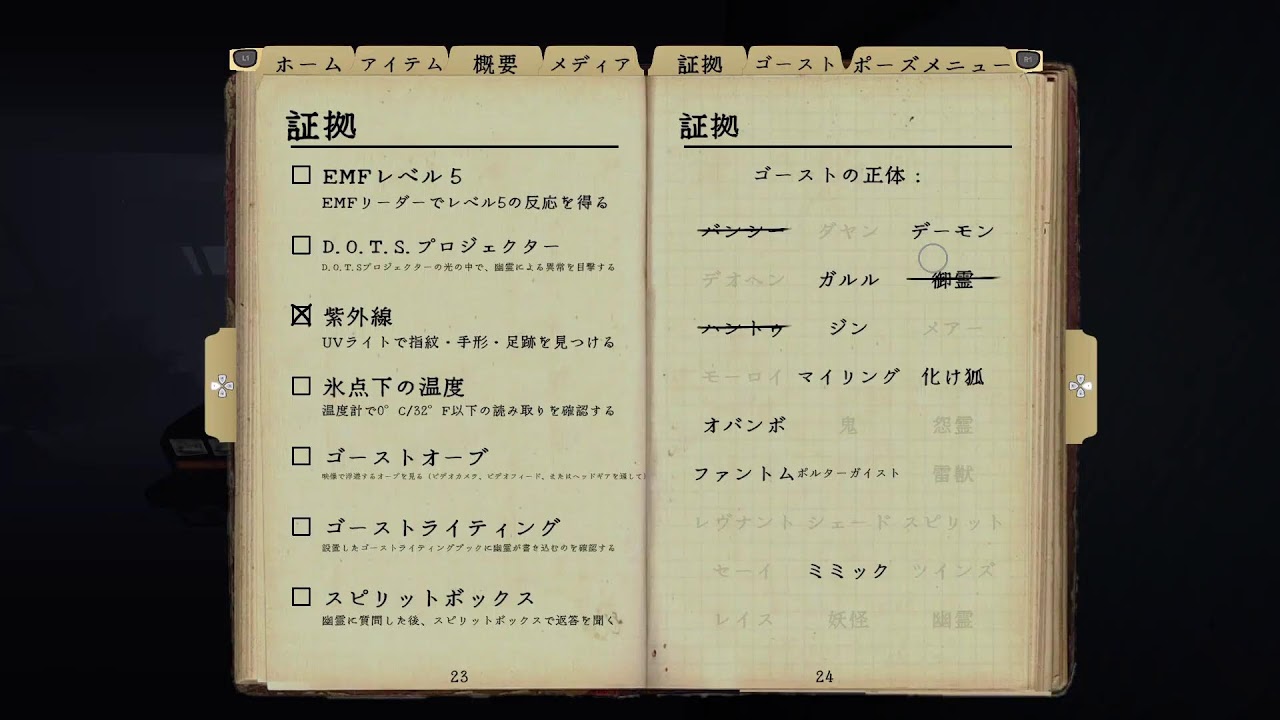 L1 ホーム アイテム 概要 メディア 証拠 ゴースト ポーズメニュー R1
証拠
EMFレベル5
EMFリーダーでレベル5の反応を得る
D.O.T.S.プロジェクター
D.O.T.Sプロジェクターの光の中で、幽霊による異常を目撃する
紫外線
UVライトで指紋・手形・足跡を見つける
氷点下の温度
温度計で0°C/32°F以下の読み取りを確認する
ゴーストオーブ
映像で浮遊するオーブを見る（ビデオカメラ、ビデオフィード、またはヘッドギアを通して）
ゴーストライティング
設置したゴーストライティングブックに幽霊が書き込むのを確認する
スピリットボックス
幽霊に質問した後、スピリットボックスで返答を聞く
23
証拠
ゴーストの正体：
バンシー ダヤン デーモン
デオヘン ガルル 御霊
ハントゥ ジン メアー
モーロイ マイリング 化け狐
オバンボ 鬼 怨霊
ファントム ポルターガイスト 雷獣
レヴナント シェード スピリット
セーイ ミミック ツインズ
レイス 妖怪 幽霊
24